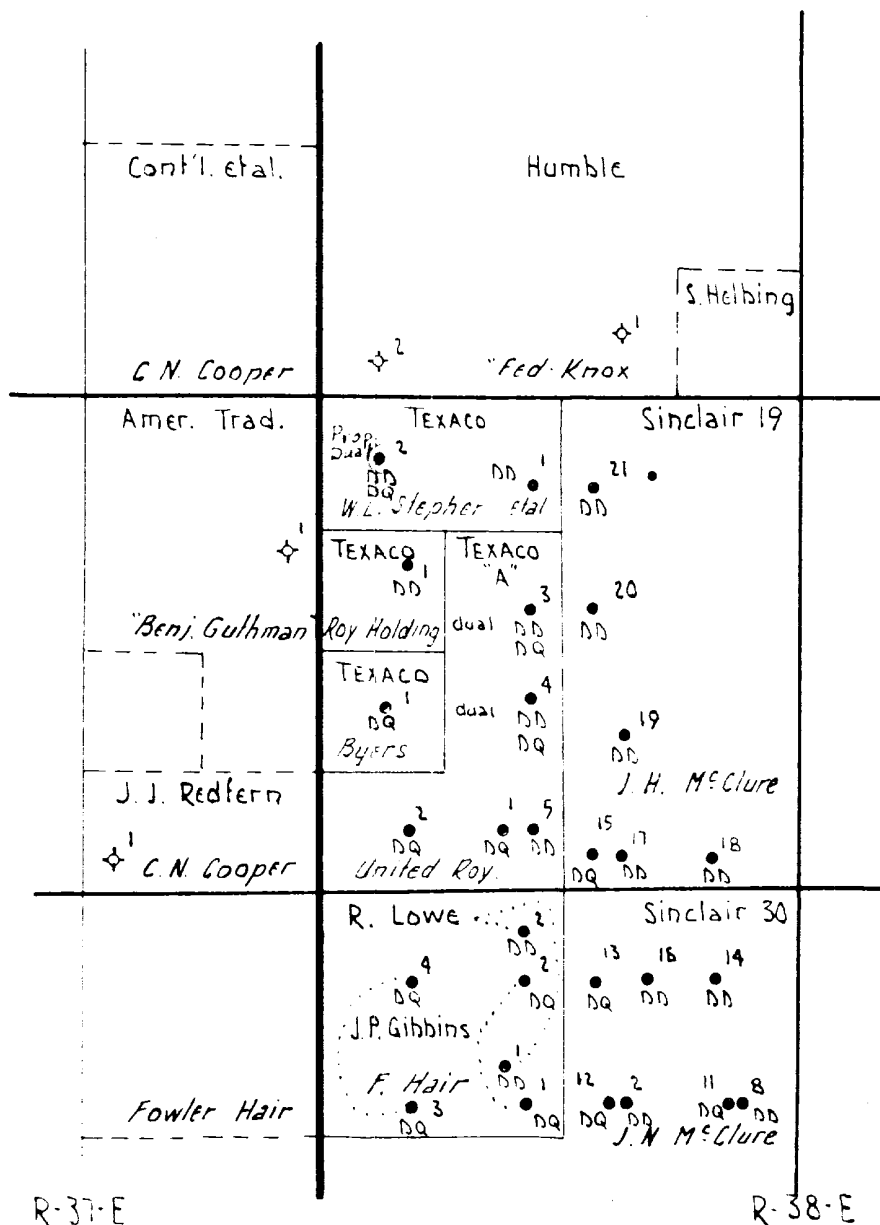 Cont'l. etal.
Humble
S. Helbing
1
2
C. N. Cooper
"Fed-Knox
Amer. Trad.
TEXACO
Sinclair 19
Prop.
Dual
2
DD
DQ
DD
1
21
DD
W.L. Stepher etal
1
TEXACO
1
DD
TEXACO
"A"
3
dual
DD
DQ
20
DD
"Benj. Guthman"
Roy Holding
TEXACO
1
DQ
Byers
4
dual
DD
DQ
19
DD
J. H. McClure
J. J. Redfern
1
C. N. Cooper
2
DQ
1
DQ
5
DD
15
DQ
17
DD
18
DD
United Roy.
R. Lowe
2
DD
Sinclair 30
4
DQ
2
DQ
13
DQ
16
DD
14
DD
J.P. Gibbins
1
DD
F. Hair
Fowler Hair
3
DQ
1
DQ
12
DQ
2
DD
11
DQ
8
DD
J. N McClure
R-37-E
R-38-E